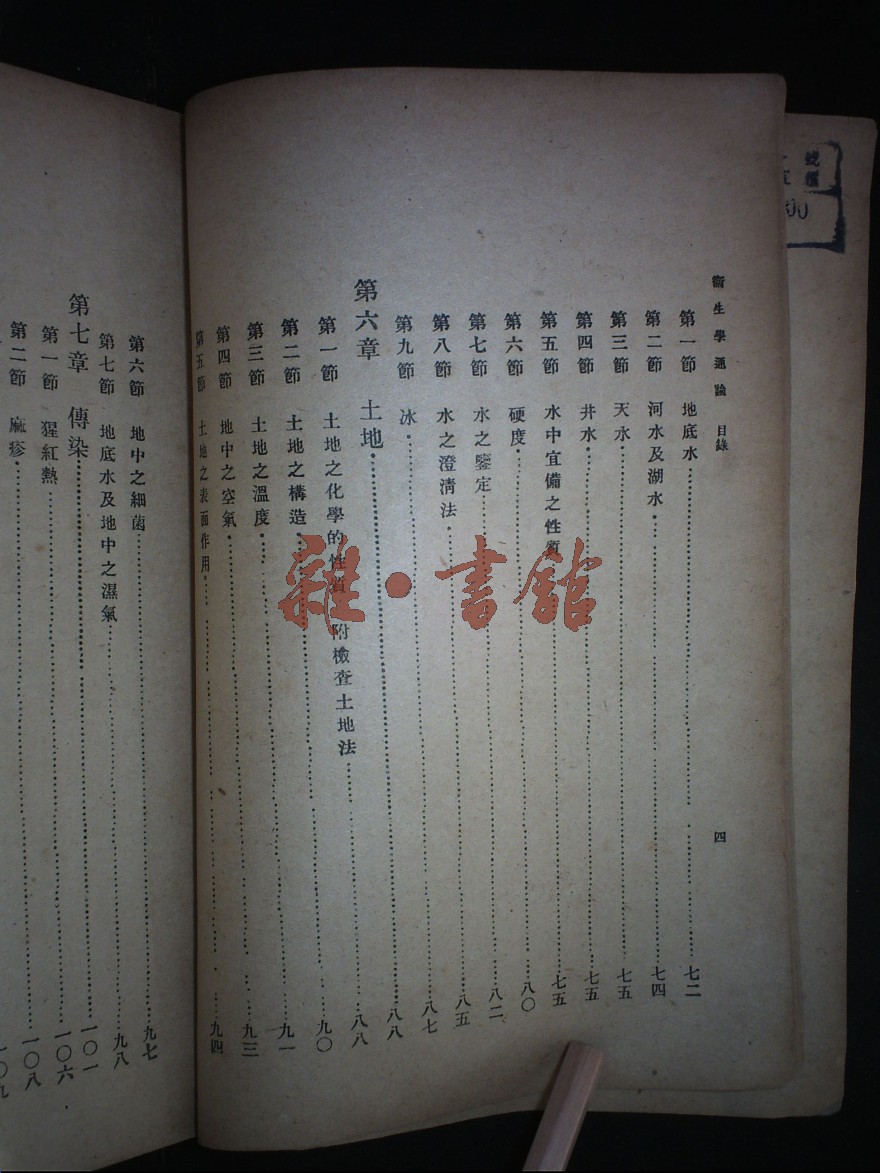 衞生學通論 目錄
四
第一節 地底水 七二
第二節 河水及湖水 七四
第三節 天水 七五
第四節 井水 七五
第五節 水中宜備之性質 七五
第六節 硬度 八〇
第七節 水之鑒定 八二
第八節 水之澄清法 八五
第九節 冰 八七
第六章 土地 八八
第一節 土地之化學的性質 附檢查土地法 八八
第二節 土地之構造 九〇
第三節 土地之溫度 九一
第四節 地中之空氣 九三
第五節 土地之表面作用 九四
第六節 地中之細菌 九七
第七節 地底水及地中之濕氣 九八
第七章 傳染 一〇一
第一節 猩紅熱 一〇六
第二節 麻疹 一〇八
一〇九
雜·書館
00